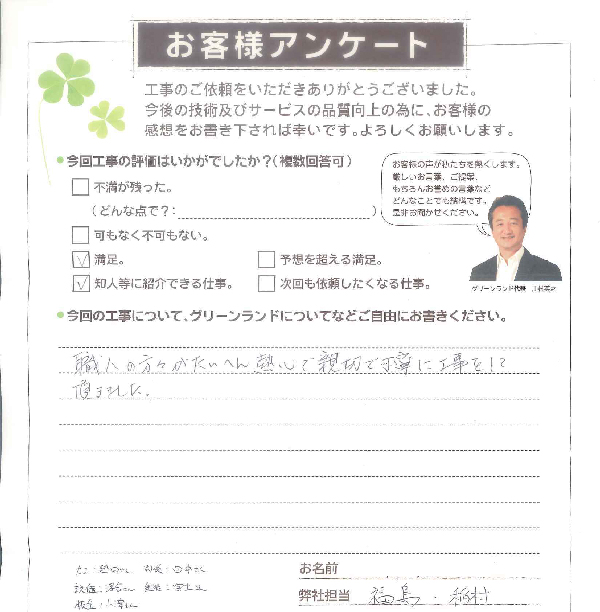 お客様アンケート
工事のご依頼をいただきありがとうございました。
今後の技術及びサービスの品質向上の為に、お客様の
感想をお書き下されば幸いです。よろしくお願いします。
今回工事の評価はいかがでしたか?(複数回答可)
不満が残った。
(どんな点で?: )
可もなく不可もない。
満足。
予想を超える満足。
知人等に紹介できる仕事。
次回も依頼したくなる仕事。
お客様の声が私たちを熱くします。
厳しいお言葉、ご提案、
もちろんお誉めの言葉など
どんなことでも結構です。
是非お聞かせください。
グリーンランド代表
今回の工事について、グリーンランドについてなどご自由にお書きください。
職人の方々がたいへん熱心で親切で丁寧に工事をして
頂きました。
お名前
弊社担当 福島・稲村